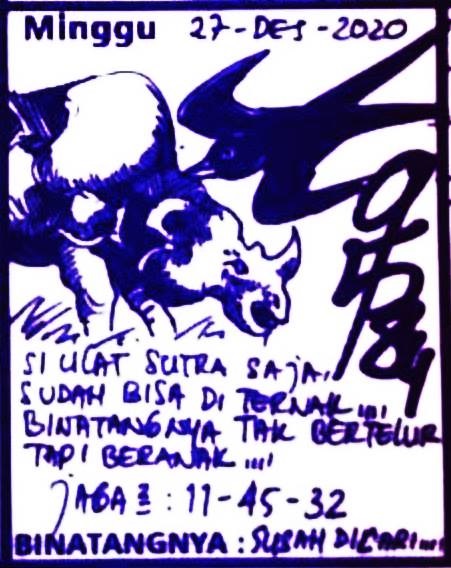 Minggu 27-DES-2020
SI ULAT SUTRA SAJA,
SUDAH BISA DI TERNAK....
BINATANGNYA TAK BERTELUR
TAPI BERANAK....
JAGA² : 11-45-32
BINATANGNYA : SUSAH DICARI....